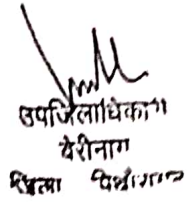 उपजिलाधिकारी
बेरीनाग
जिला पिथौरागढ़